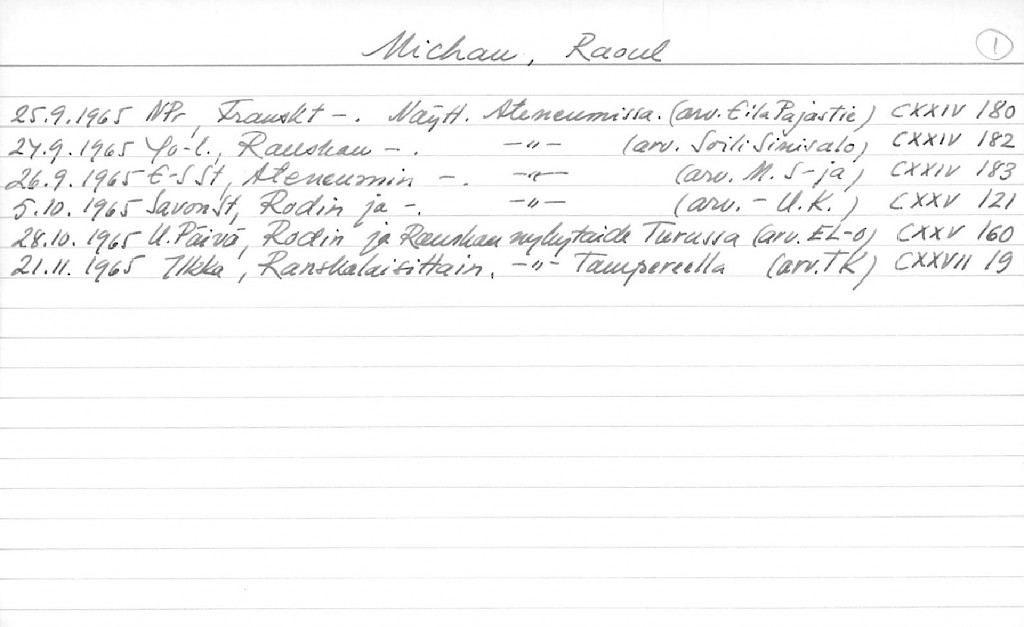 Michau, Raoul 1
25.9.1965 NPr, Franskt -. Näytt. Ateneumissa. (arv. Eila Pajastie) CXXIV 180
24.9.1965 Yo-l., Ranskan -. -"- (arv. Soili Sinisalo) CXXIV 182
26.9.1965 E-S St, Ateneumin -. -"- (arv. M. S-ja) CXXIV 183
5.10.1965 SavonSt, Rodin ja -. -"- (arv. - U.K.) CXXV 121
28.10.1965 U.Päivä, Rodin ja Ranskan nykytaide Turussa (arv. EL-o) CXXV 160
21.11.1965 Ilkka, Ranskalaisittain. -"- Tampereella (arv. TK) CXXVII 19